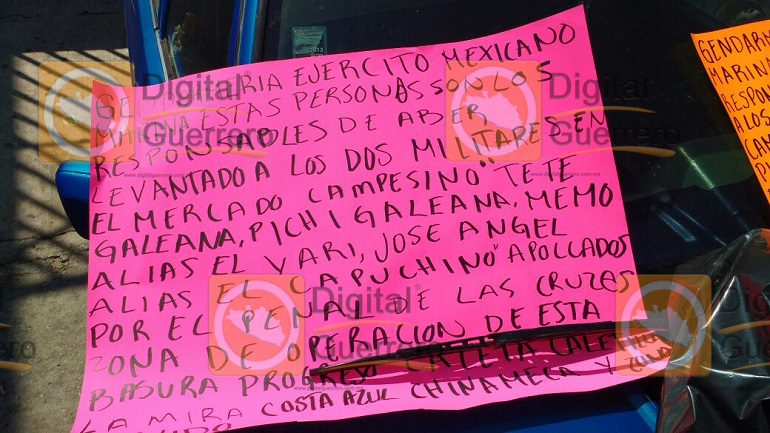 GENDARMERIA EJERCITO MEXICANO
MARINA ESTAS PERSONAS SON LOS
RESPONSABLES DE ABER
LEVANTADO A LOS DOS MILITARES EN
EL MERCADO CAMPESINO" TETE
GALEANA, PICHI GALEANA, MEMO
ALIAS EL YARI, JOSE ANGEL
ALIAS EL CAPUCHINO" APOLLADOS
POR EL PENAL DE LAS CRUZES
ZONA DE OPERACION DE ESTA
BASURA PROGRESO CALETA CALETILLA
LA MIRA COSTA AZUL CHINAMECA Y ZONA
GENDARM
MARINA
RESPON
A LOS
CAM
Digital
Guerrero
www.digitalguerrero.com.mx
Digital
Guerrero
Digital
Guerrero
Digital
Guerrero
2013